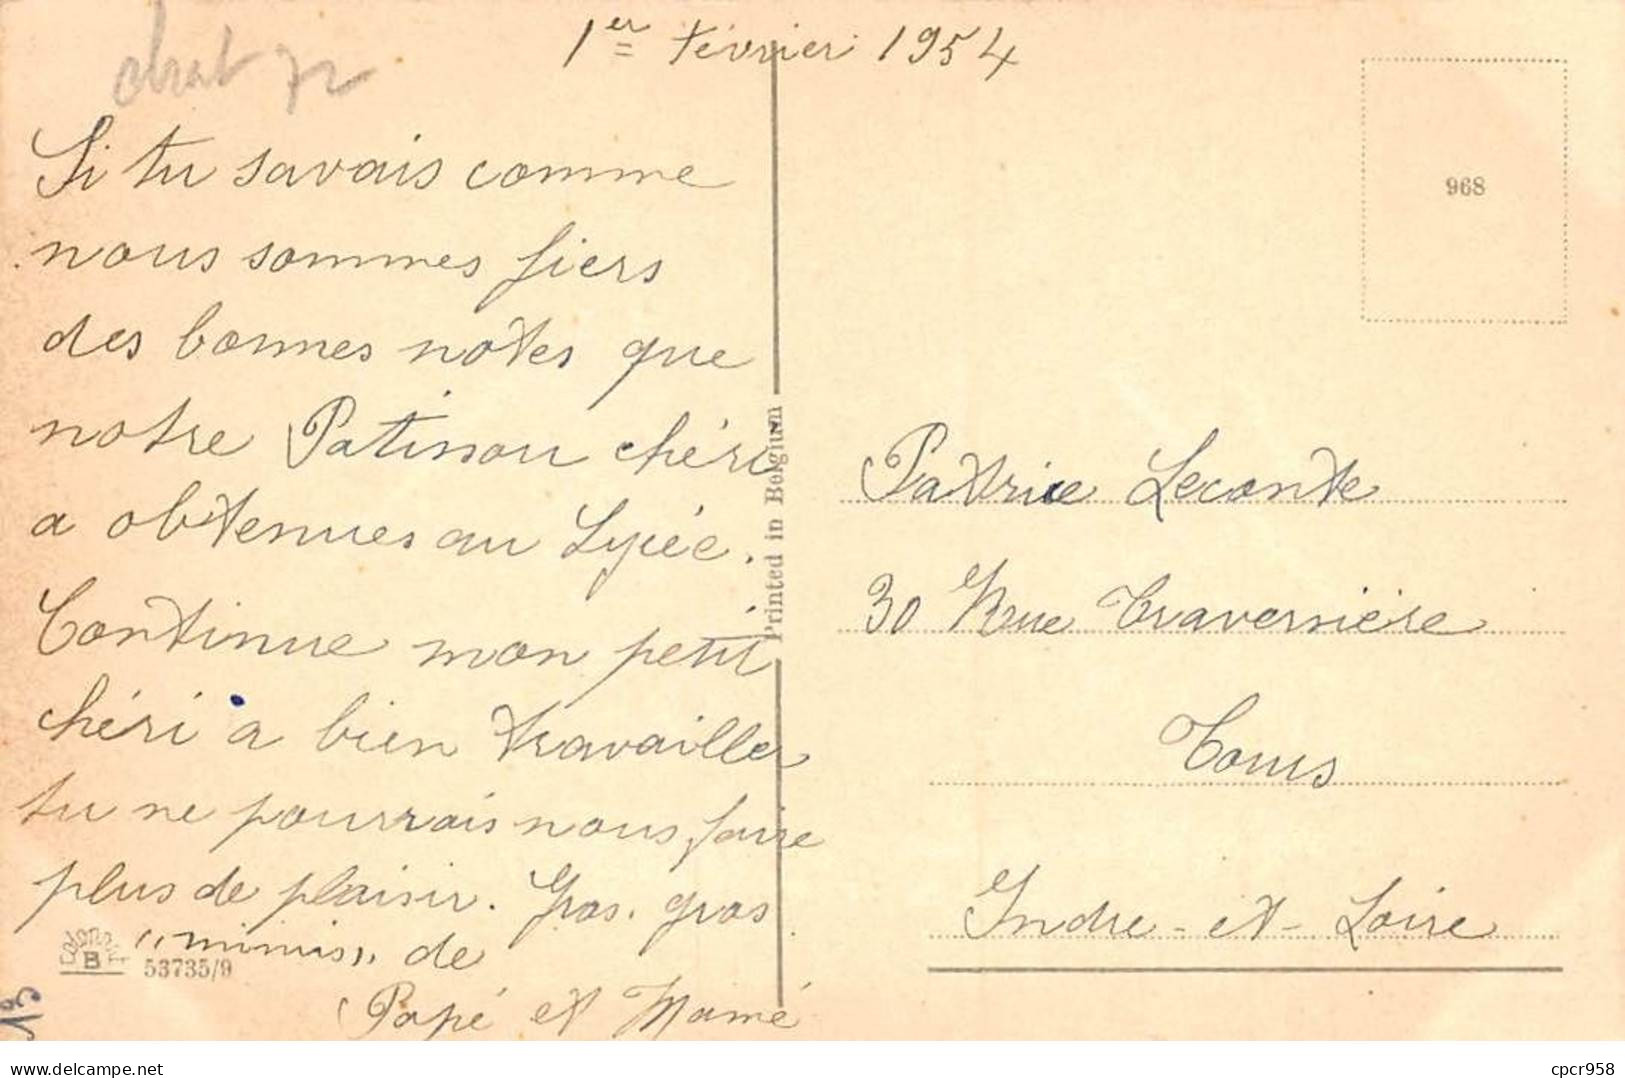 1er février 1954
chat
Si tu savais comme
nous sommes fiers
des bonnes notes que
notre Patinou chéri
a obtenues au Lycée.
Continue mon petit
chéri a bien travailler
tu ne pourrais nous faire
plus de plaisir. Gros. gros
"minis" de
Papé et Mamé
Colorprint
B
53735/9
Printed in Belgium
968
Patrice Leconte
30 Rue Traversière
Tours
Indre-et-Loire
www.delcampe.net
cpcr958